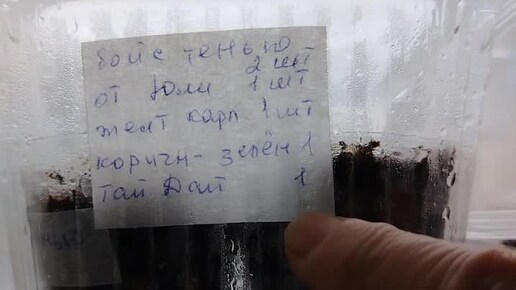 бойс теньго
2 шт
от Юли 1 шт
желт карл 1 шт
коричн - зелён 1
Тай Дай 1